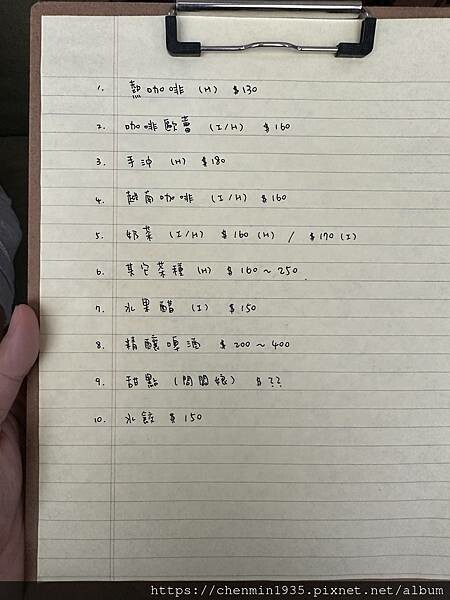 1. 熱咖啡 (H) $130
2. 咖啡歐蕾 (I/H) $160
3. 手沖 (H) $180
4. 越南咖啡 (I/H) $160
5. 奶茶 (I/H) $160 (H) / $170 (I)
6. 其它茶種 (H) $160~250
7. 水果醋 (I) $150
8. 精釀啤酒 $200~400
9. 甜點 (問闆娘) $??
10. 水餃 $150
https://chenmin1935.pixnet.net/album